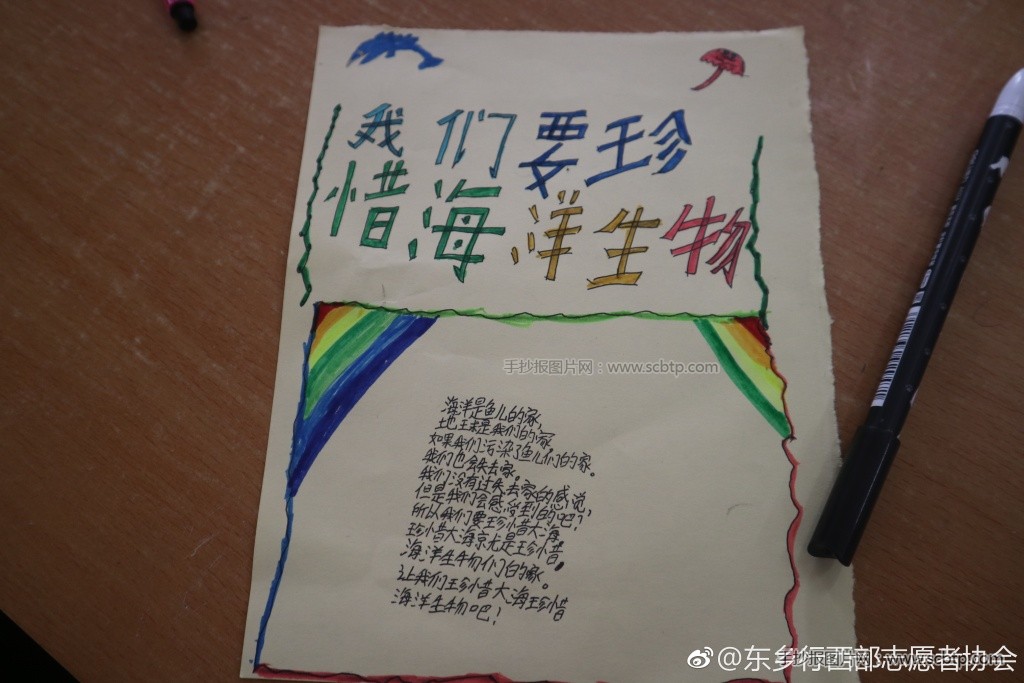 我们要珍
惜海洋生物
手抄报图片网：www.scbtp.com
海洋是鱼儿的家，
地球是我们的家，
如果我们污染了鱼儿们的家。
我们也会失去家。
我们没有过失去家的感说，
但是我们会感受到的吧？
所以我们要珍惜大海。
珍惜大海就是珍惜。
海洋生物们的家。
让我们珍惜大海珍惜
海洋生物吧！
@东乡行西部志愿者协会